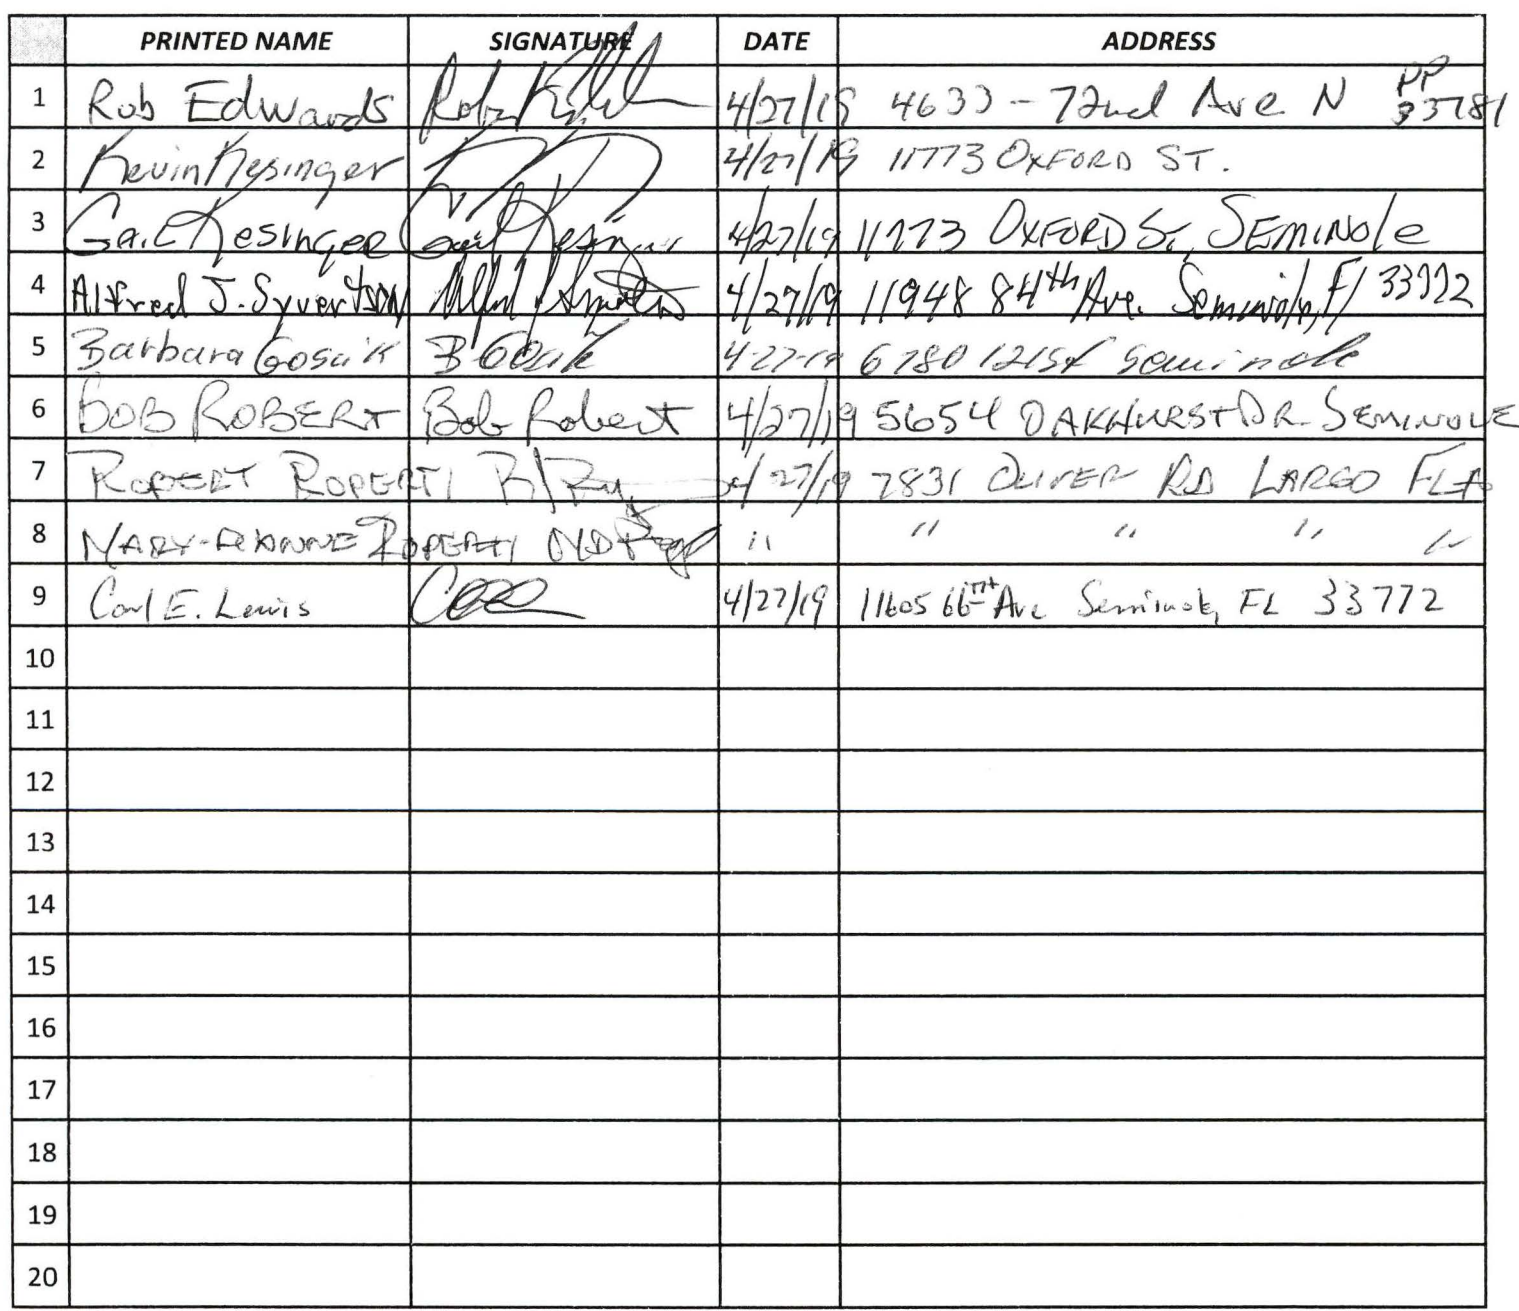 PRINTED NAME SIGNATURE DATE ADDRESS
1 Rob Edwards 4/27/19 4633 - 72nd Ave N PP 33781
2 Kevin Kesinger 4/27/19 11773 OXFORD ST.
3 Gail Kesinger Gail Kesinger 4/27/19 11773 OXFORD ST, SEMINOLE
4 Alfred J. Syvertson 4/27/19 11948 84th Ave. Seminole, Fl 33772
5 Barbara 4-27-19 6780 121st Seminole
6 BOB ROBERT Bob Robert 4/27/19 5654 OAKHURST DR. SEMINOLE
7 ROBERT ROPERTI 4/27/19 7831 OLIVER RD LARGO FLA
8 MARY- ROPERTI " " " " "
9 Carl E. Lewis 4/27/19 11605 66th Ave Seminole, FL 33772
10
11
12
13
14
15
16
17
18
19
20